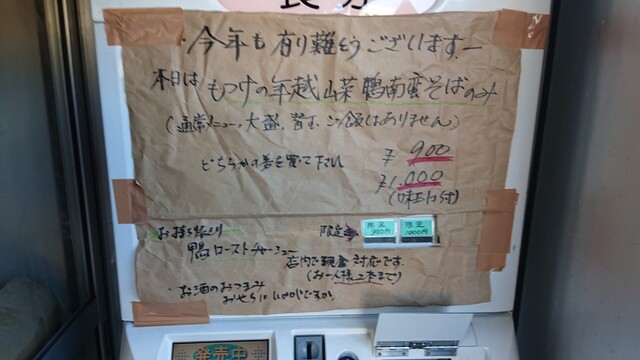 今年も有り難とうございますー
本日は もつけの年越山菜鴨南蛮そばのみ
(通常メニュー、大盛、替玉、ご飯はありません)
どちらかの券を買て下さい
¥900
¥1,000
(味玉付)
お持ち帰り
限定
限定
900円
限定
1000円
鴨ローストチャーシュー
店内で現金対応です。
(お一人様2本まで)
・お酒のおつまみ
おせちにいかがですか。
発売中